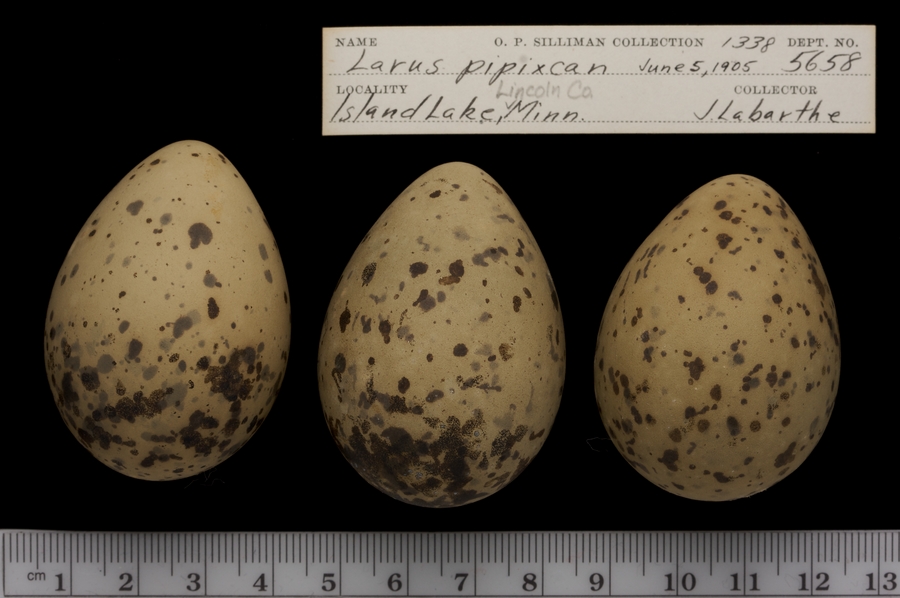 NAME O. P. SILLIMAN COLLECTION 1338 DEPT. NO.
Larus pipixcan June 5, 1905 5658
LOCALITY Lincoln Co COLLECTOR
Island Lake, Minn. J Labarthe
cm 1 2 3 4 5 6 7 8 9 10 11 12 13